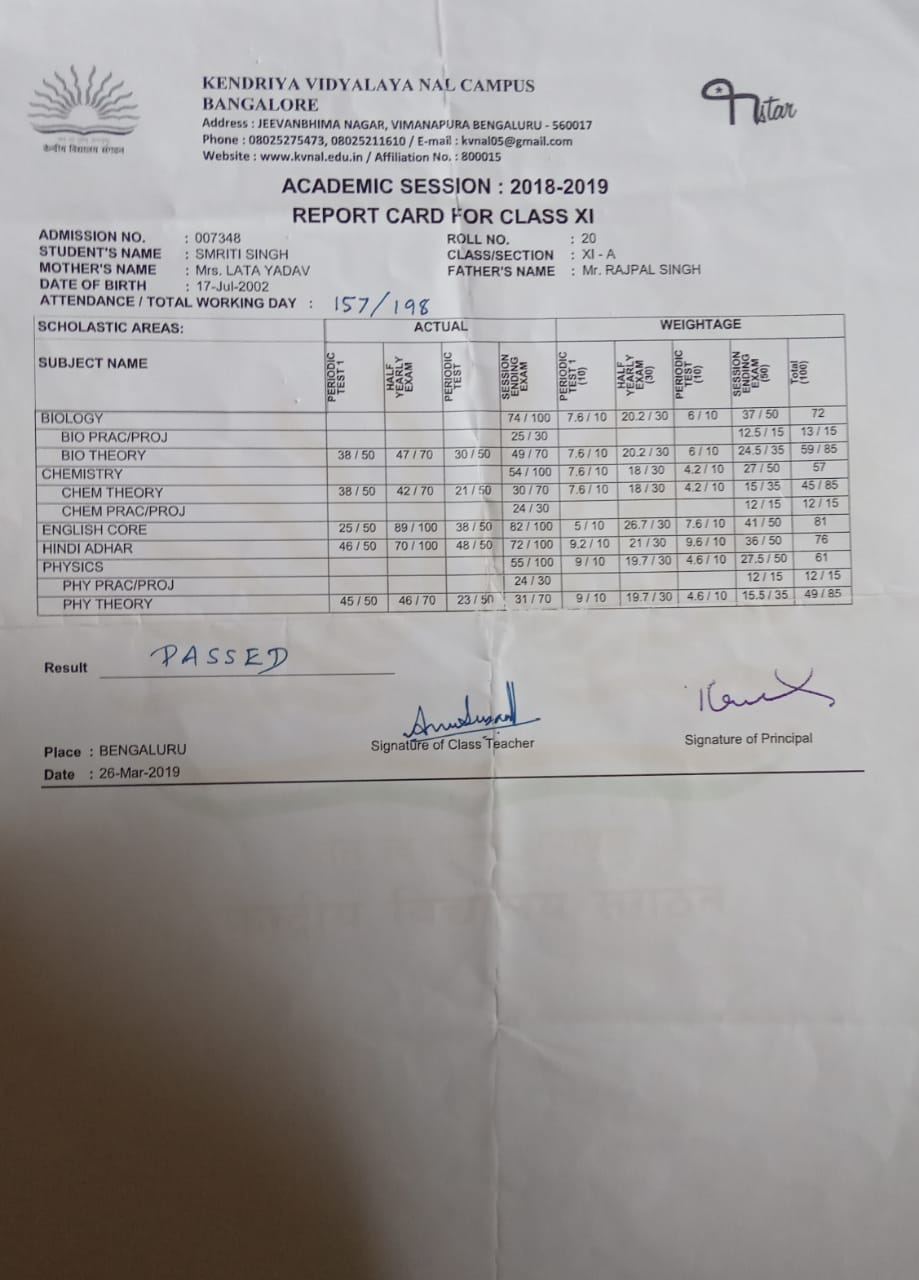 KENDRIYA VIDYALAYA NAL CAMPUS
BANGALORE
Address : JEEVANBHIMA NAGAR, VIMANAPURA BENGALURU - 560017
Phone : 08025275473, 08025211610 / E-mail : kvnal05@gmail.com
Website : www.kvnal.edu.in / Affiliation No. : 800015
केन्द्रीय विद्यालय संगठन
star
ACADEMIC SESSION : 2018-2019
REPORT CARD FOR CLASS XI
ADMISSION NO. : 007348 ROLL NO. : 20
STUDENT'S NAME : SMRITI SINGH CLASS/SECTION : XI - A
MOTHER'S NAME : Mrs. LATA YADAV FATHER'S NAME : Mr. RAJPAL SINGH
DATE OF BIRTH : 17-Jul-2002
ATTENDANCE / TOTAL WORKING DAY : 157/198
SCHOLASTIC AREAS: ACTUAL WEIGHTAGE
SUBJECT NAME PERIODIC TEST 1 HALF YEARLY EXAM PERIODIC TEST SESSION ENDING EXAM PERIODIC TEST 1 (10) HALF YEARLY EXAM (30) PERIODIC TEST (10) SESSION ENDING EXAM (50) Total (100)
BIOLOGY 74 / 100 7.6 / 10 20.2 / 30 6 / 10 37 / 50 72
BIO PRAC/PROJ 25 / 30 12.5 / 15 13 / 15
BIO THEORY 38 / 50 47 / 70 30 / 50 49 / 70 7.6 / 10 20.2 / 30 6 / 10 24.5 / 35 59 / 85
CHEMISTRY 54 / 100 7.6 / 10 18 / 30 4.2 / 10 27 / 50 57
CHEM THEORY 38 / 50 42 / 70 21 / 50 30 / 70 7.6 / 10 18 / 30 4.2 / 10 15 / 35 45 / 85
CHEM PRAC/PROJ 24 / 30 12 / 15 12 / 15
ENGLISH CORE 25 / 50 89 / 100 38 / 50 82 / 100 5 / 10 26.7 / 30 7.6 / 10 41 / 50 81
HINDI ADHAR 46 / 50 70 / 100 48 / 50 72 / 100 9.2 / 10 21 / 30 9.6 / 10 36 / 50 76
PHYSICS 55 / 100 9 / 10 19.7 / 30 4.6 / 10 27.5 / 50 61
PHY PRAC/PROJ 24 / 30 12 / 15 12 / 15
PHY THEORY 45 / 50 46 / 70 23 / 50 31 / 70 9 / 10 19.7 / 30 4.6 / 10 15.5 / 35 49 / 85
Result PASSED
Signature of Class Teacher Signature of Principal
Place : BENGALURU
Date : 26-Mar-2019